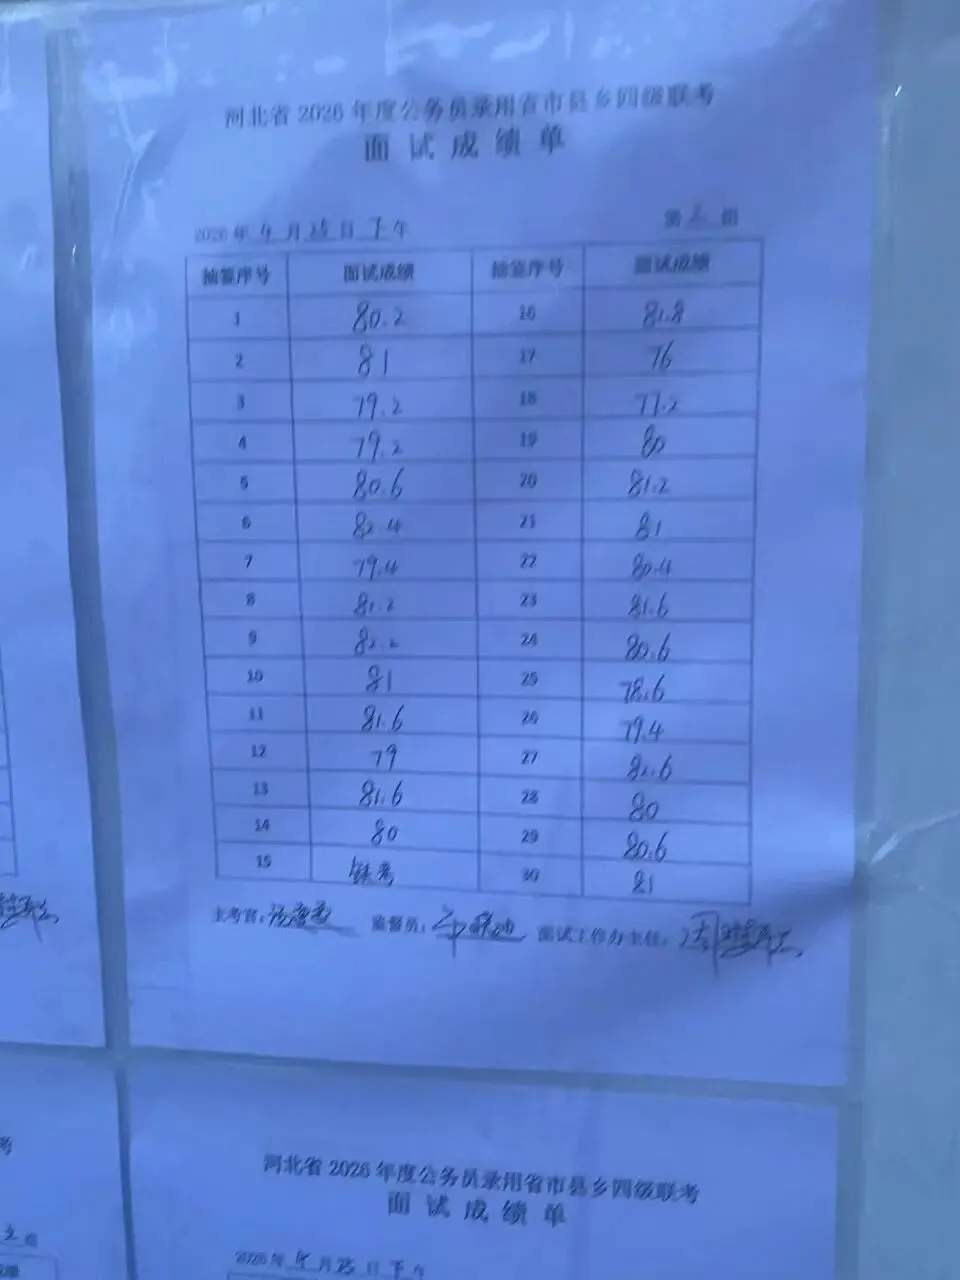 河北省2026年度公务员录用省市县乡四级联考
面试成绩单
2026年4月25日下午 第 组
抽签序号 面试成绩 抽签序号 面试成绩
1 80.2 16 81.8
2 81 17 76
3 79.2 18 77.2
4 79.2 19 80
5 80.6 20 81.2
6 82.4 21 81
7 79.4 22 80.4
8 81.2 23 81.6
9 82.2 24 80.6
10 81 25 78.6
11 81.6 26 79.4
12 79 27 82.6
13 81.6 28 80
14 80 29 80.6
15 缺考 30 81
主考官: 监督员: 面试工作办主任:
考
组
成绩
河北省2026年度公务员录用省市县乡四级联考
面试成绩单
2026年4月25日下午